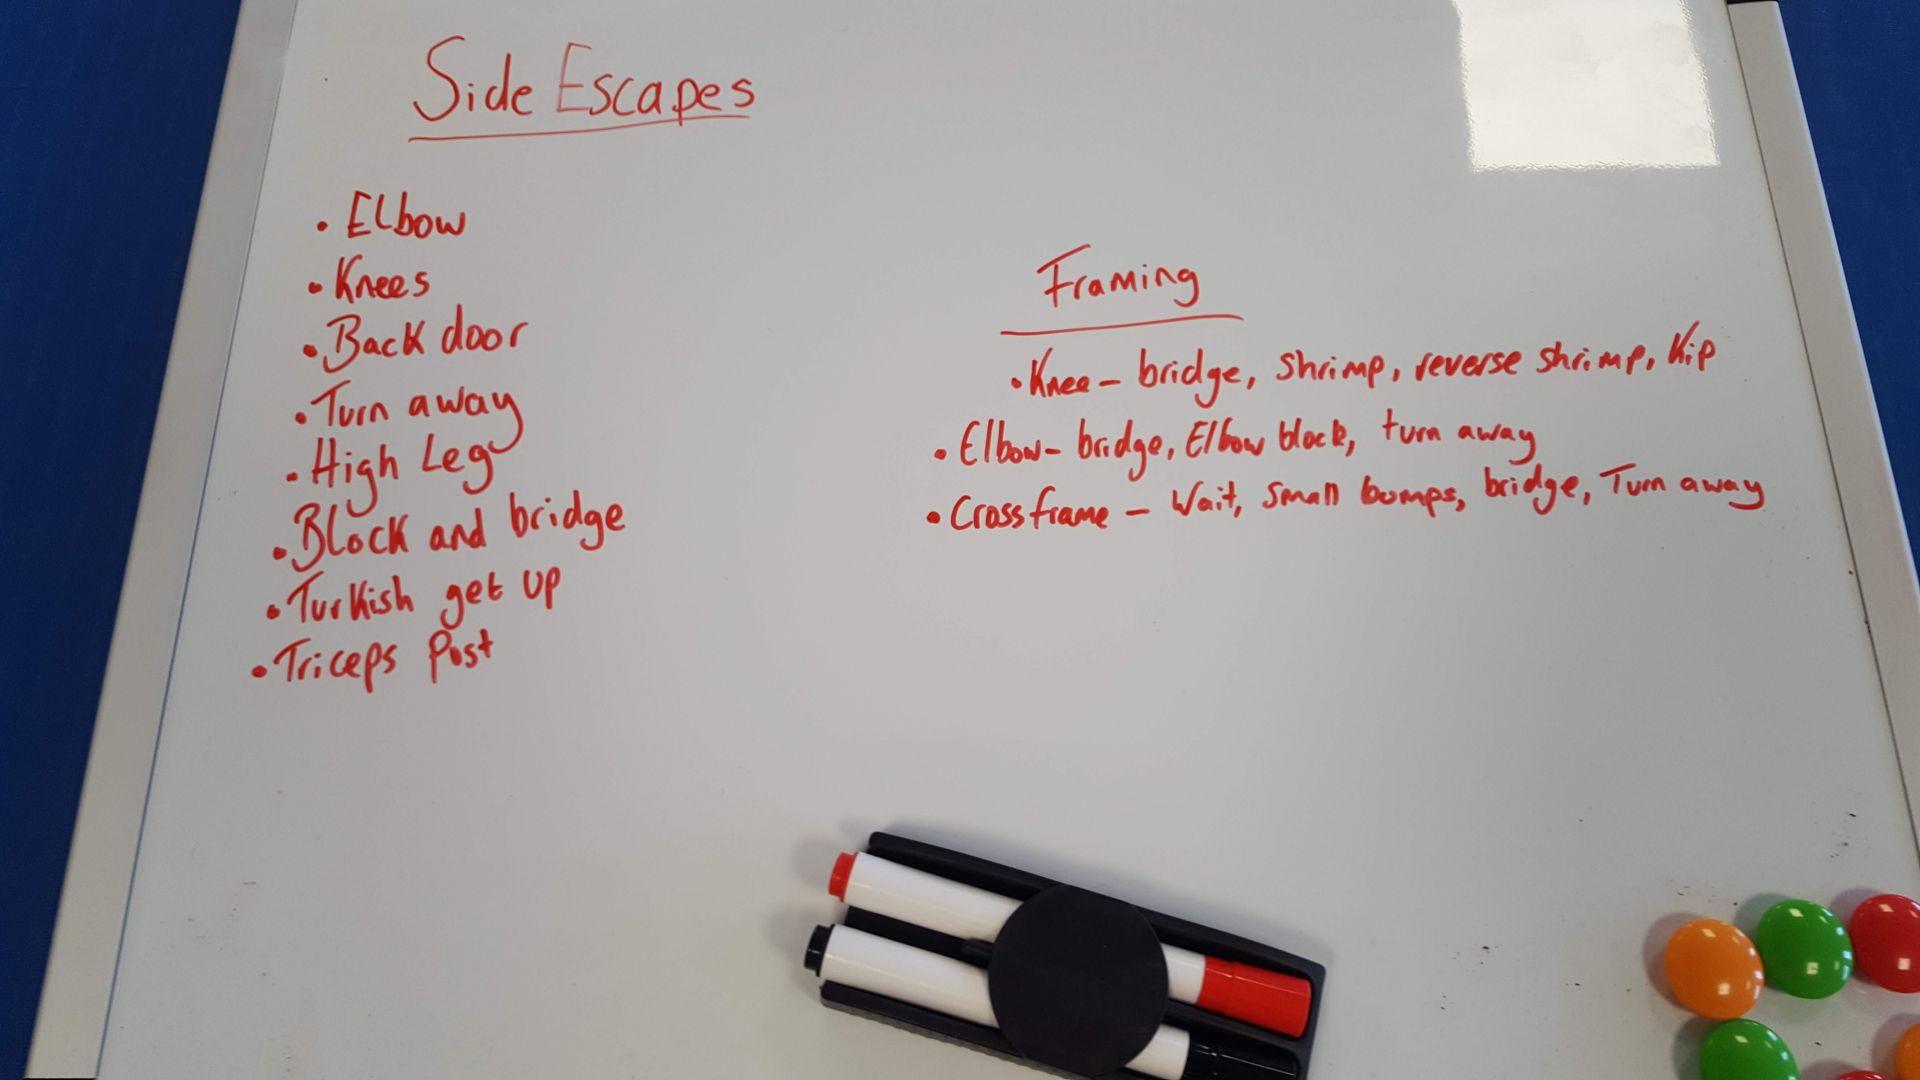 Side Escapes
• Elbow
• Knees
• Back door
• Turn away
• High Leg
• Block and bridge
• Turkish get up
• Triceps Post
Framing
• Knee - bridge, Shrimp, reverse shrimp, Kip
• Elbow - bridge, Elbow block, turn away
• Cross frame - Wait, Small bumps, bridge, Turn away